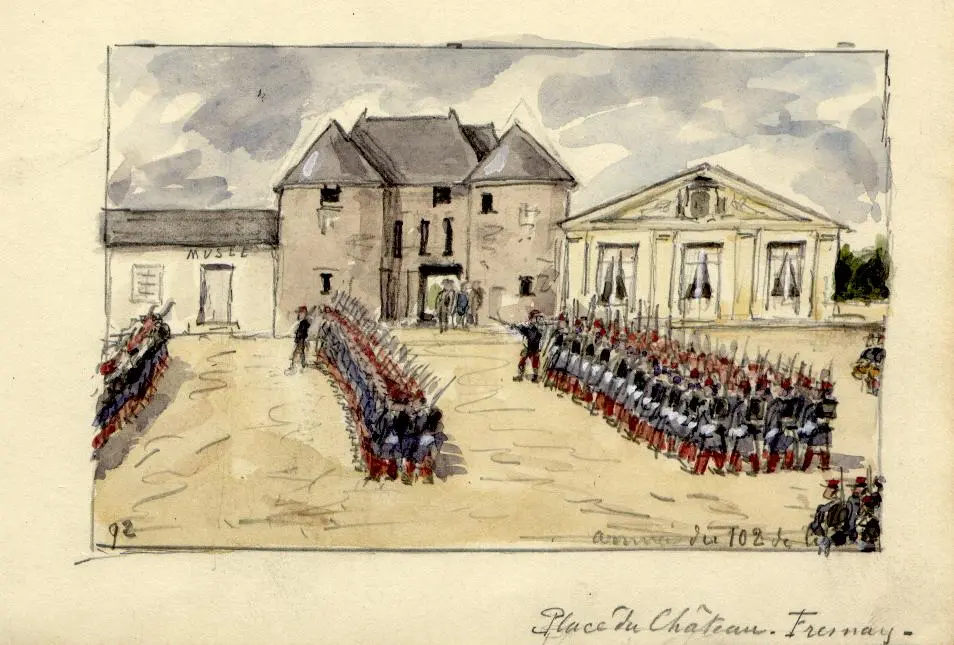 MUSÉE
92
arrivée du 102 de li
Place du Château. Fresnay-